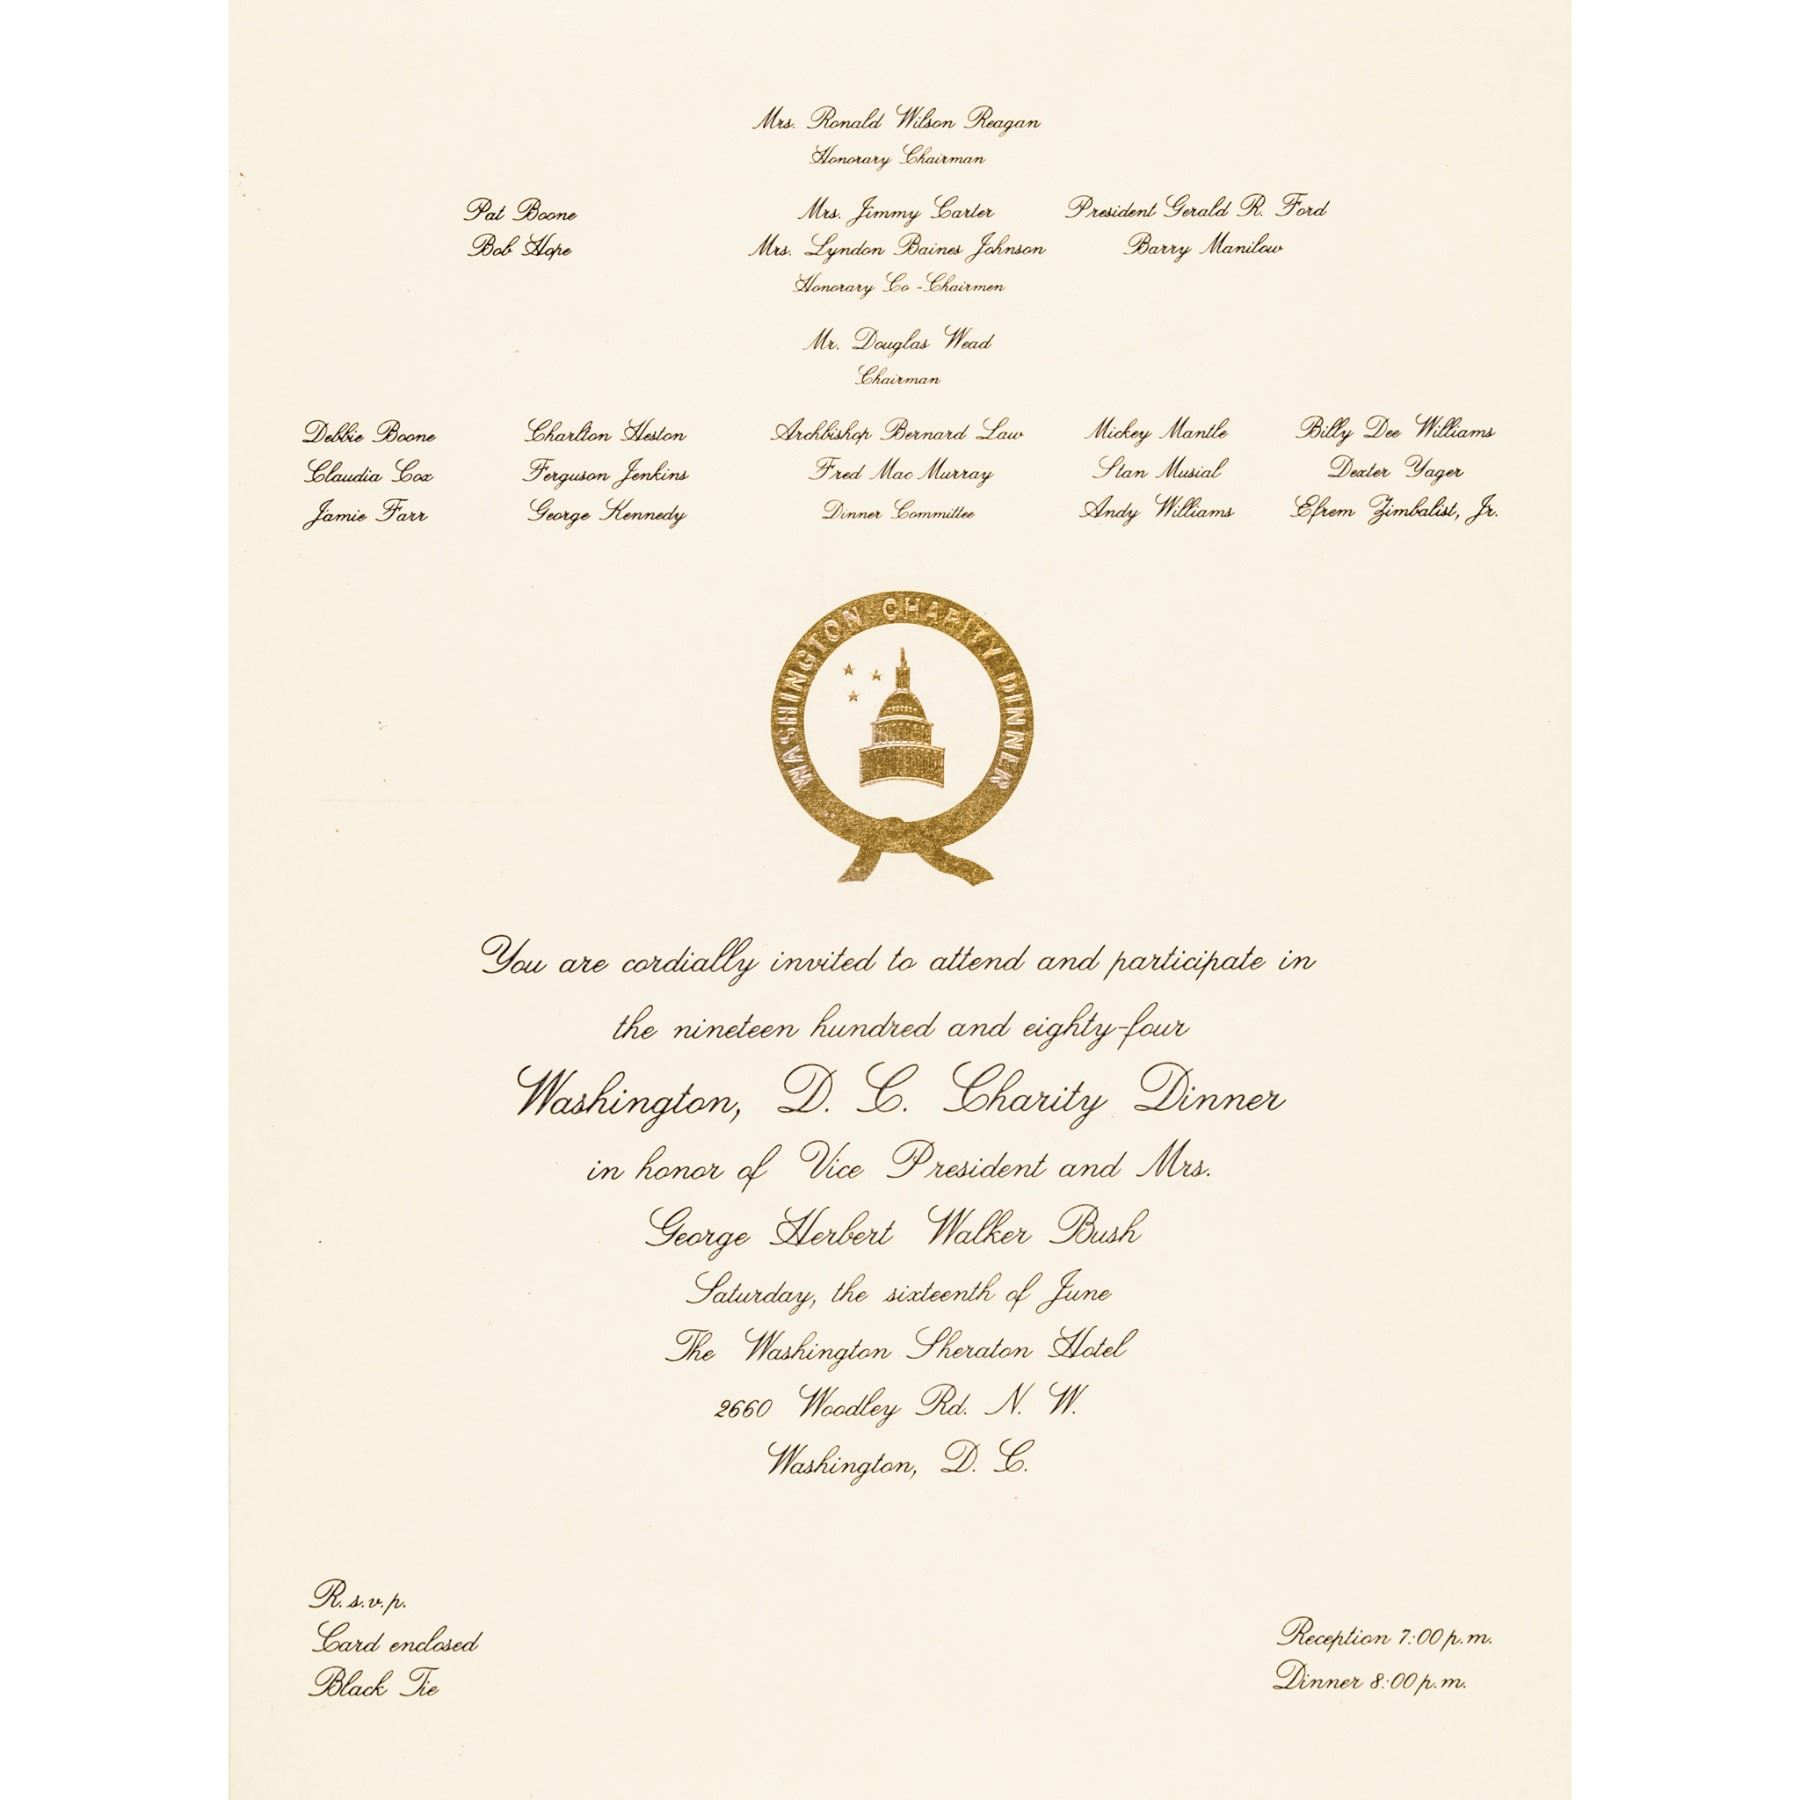 Mrs. Ronald Wilson Reagan
Honorary Chairman
Pat Boone Mrs. Jimmy Carter President Gerald R. Ford
Bob Hope Mrs. Lyndon Baines Johnson Barry Manilow
Honorary Co-Chairmen
Mr. Douglas Wead
Chairman
Debbie Boone Charlton Heston Archbishop Bernard Law Mickey Mantle Billy Dee Williams
Claudia Cox Ferguson Jenkins Fred Mac Murray Stan Musial Dexter Yager
Jamie Farr George Kennedy Dinner Committee Andy Williams Efrem Zimbalist, Jr.
WASHINGTON CHARITY DINNER
You are cordially invited to attend and participate in
the nineteen hundred and eighty-four
Washington, D. C. Charity Dinner
in honor of Vice President and Mrs.
George Herbert Walker Bush
Saturday, the sixteenth of June
The Washington Sheraton Hotel
2660 Woodley Rd. N. W.
Washington, D. C.
R.s.v.p.
Card enclosed
Black Tie
Reception 7:00 p.m.
Dinner 8:00 p.m.